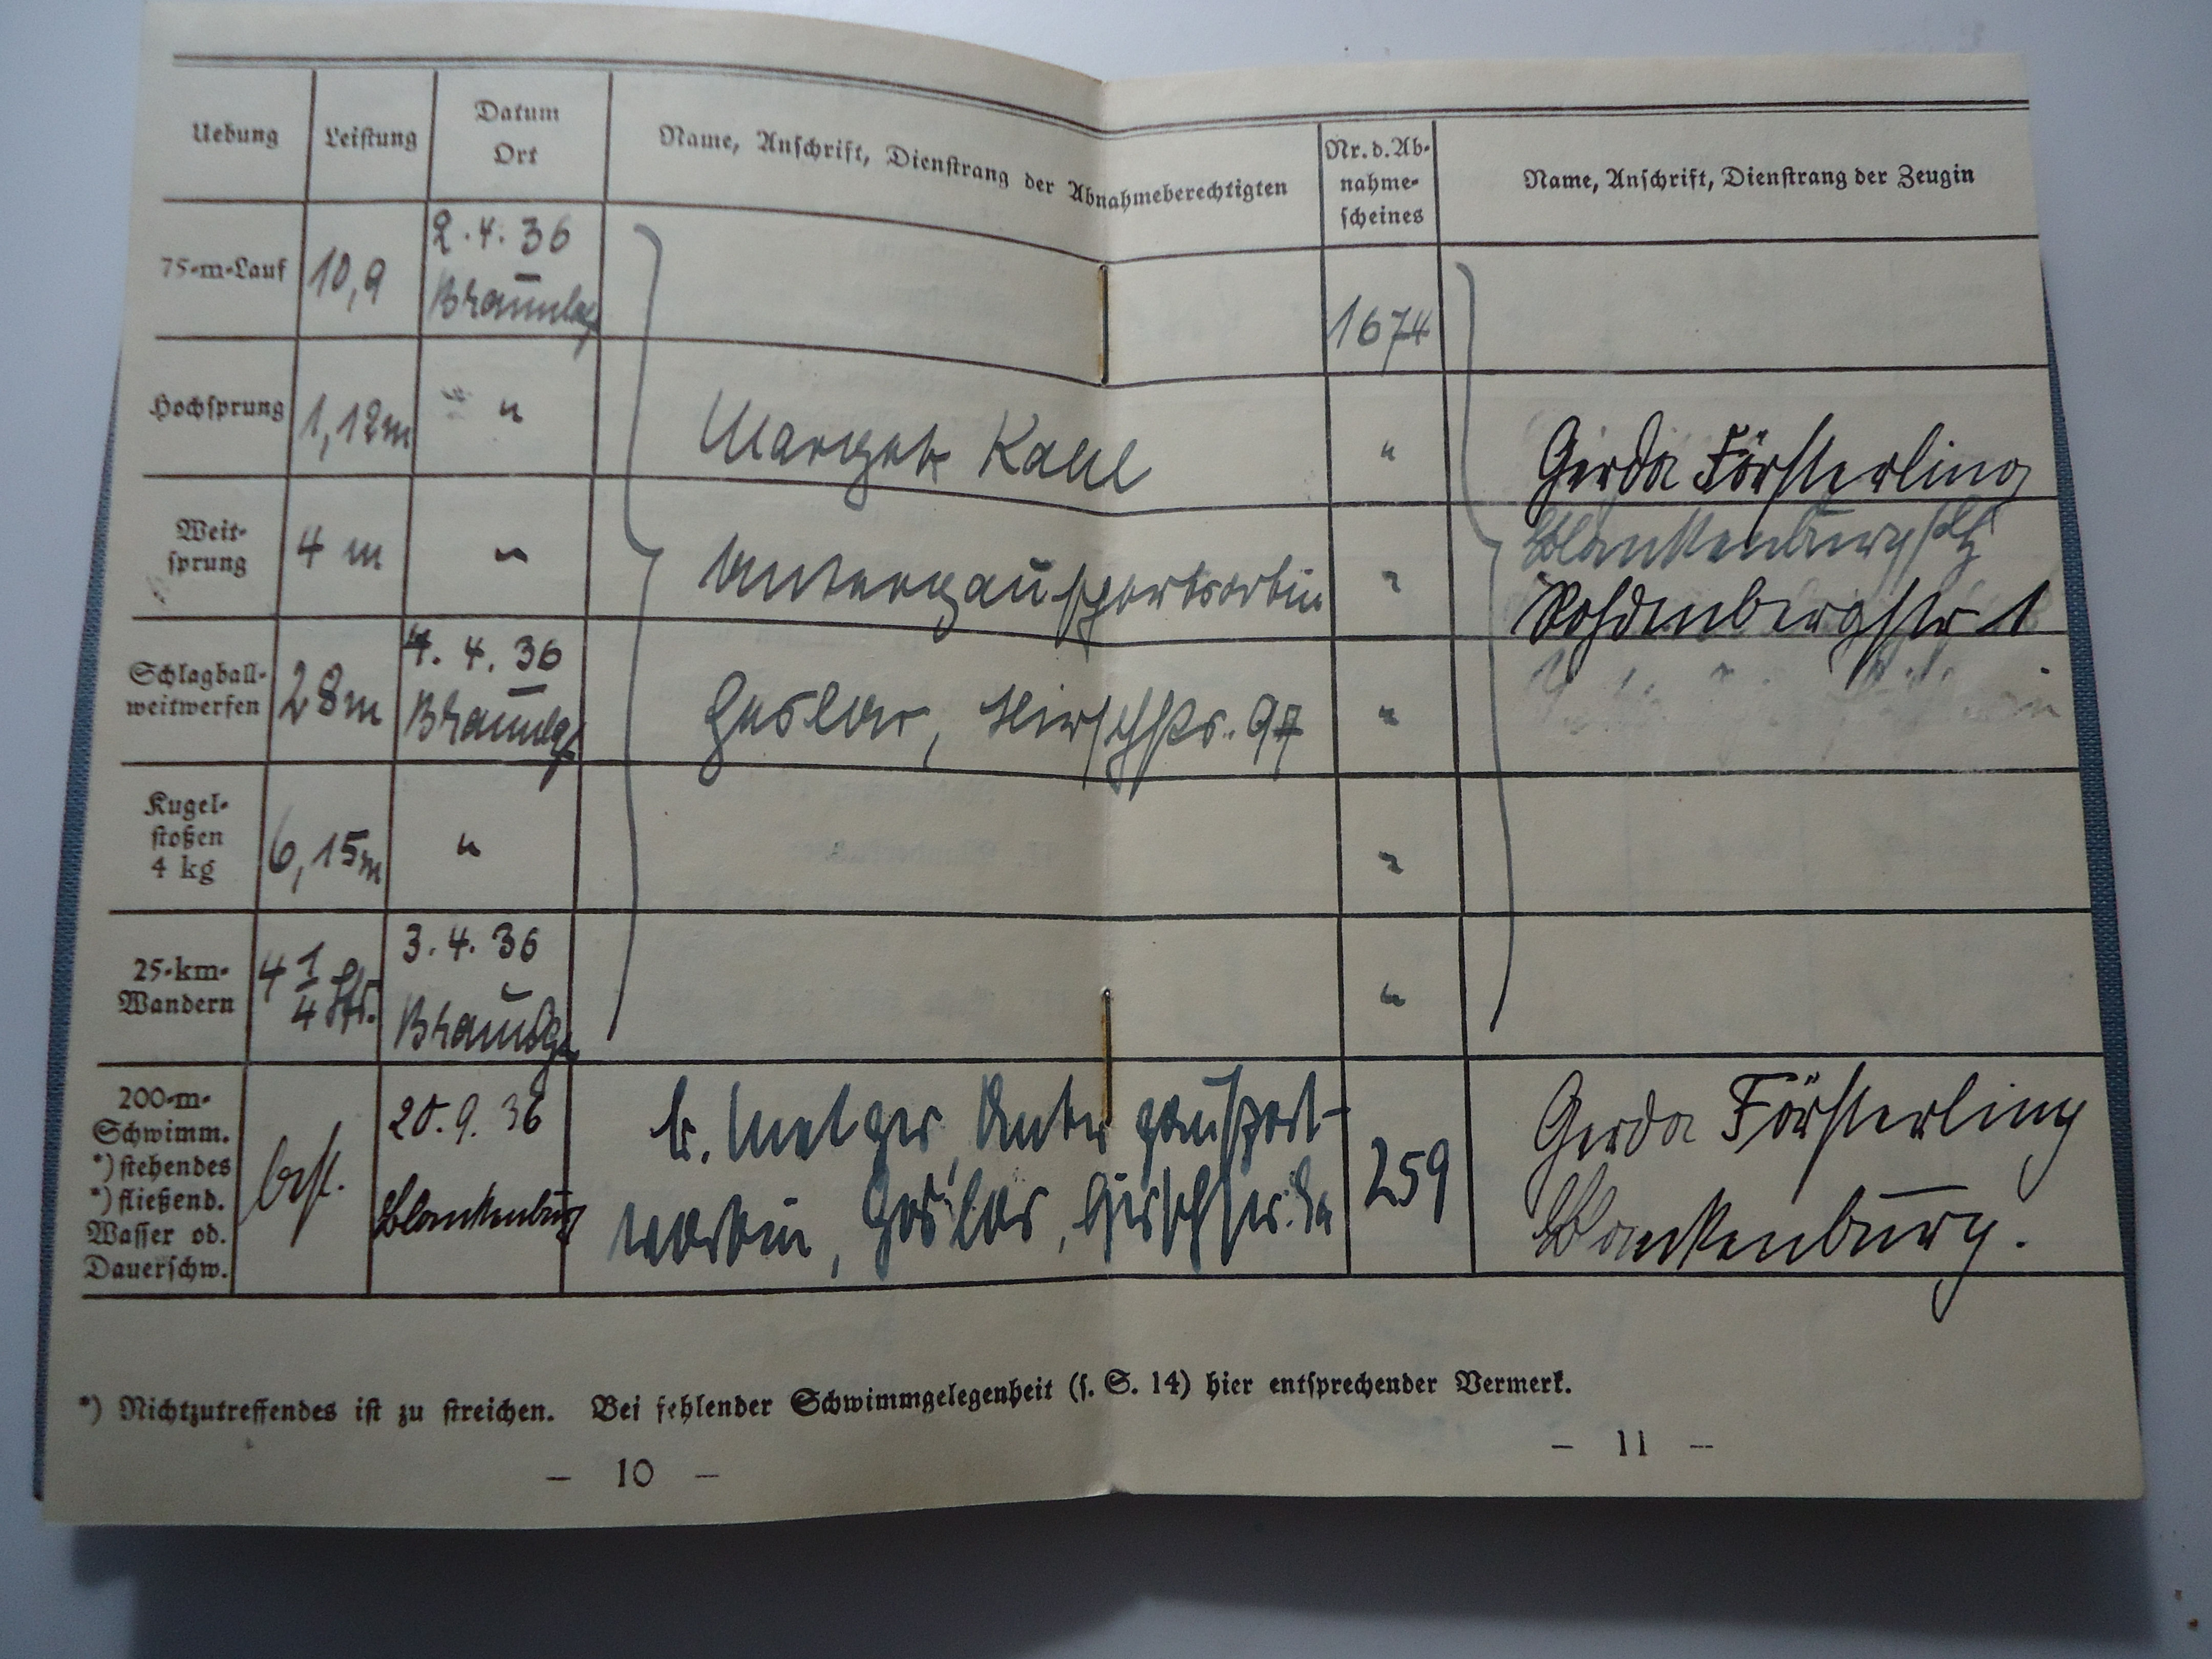 Uebung
Leistung
Datum
Ort
Name, Anschrift, Dienstrang der Abnahmeberechtigten
Nr. d. Ab-
nahme-
scheines
Name, Anschrift, Dienstrang der Zeugin
75-m-Lauf
10,9
2.4.36
Braunlag
1674
Hochsprung
1,12m
"
Margot Kahl
"
Gerda Försterling
Blankenburg/Hz
Weit-
sprung
4 m
"
Untergausportwartin
"
Rohdenbergstr 1
Schlagball-
weitwerfen
28m
4.4.36
Braunlg
Goslar, Hirschstr. 97
"
Kugel-
stoßen
4 kg
6,15m
"
"
25-km-
Wandern
4 1/4 Std.
3.4.36
Braunlg
"
200-m-
Schwimm.
*) stehendes
*) fließend.
Wasser od.
Dauerschw.
best.
20.9.36
Blankenburg
Untergausport-
wartin, Goslar,
259
Gerda Försterling
Blankenburg.
*) Nichtzutreffendes ist zu streichen. Bei fehlender Schwimmgelegenheit (s. S. 14) hier entsprechender Vermerk.
— 10 —
— 11 —